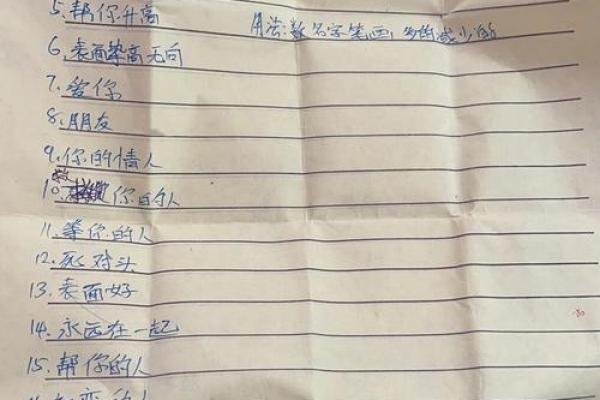 5.帮你升高
用法:数名字笔画,多的减少的
6.表面崇高无向
7.爱你
8.朋友
9.你的情人
10.救你的人
11.等你的人
12.死对头
13.表面好
14.永远在一起
15.帮你的人